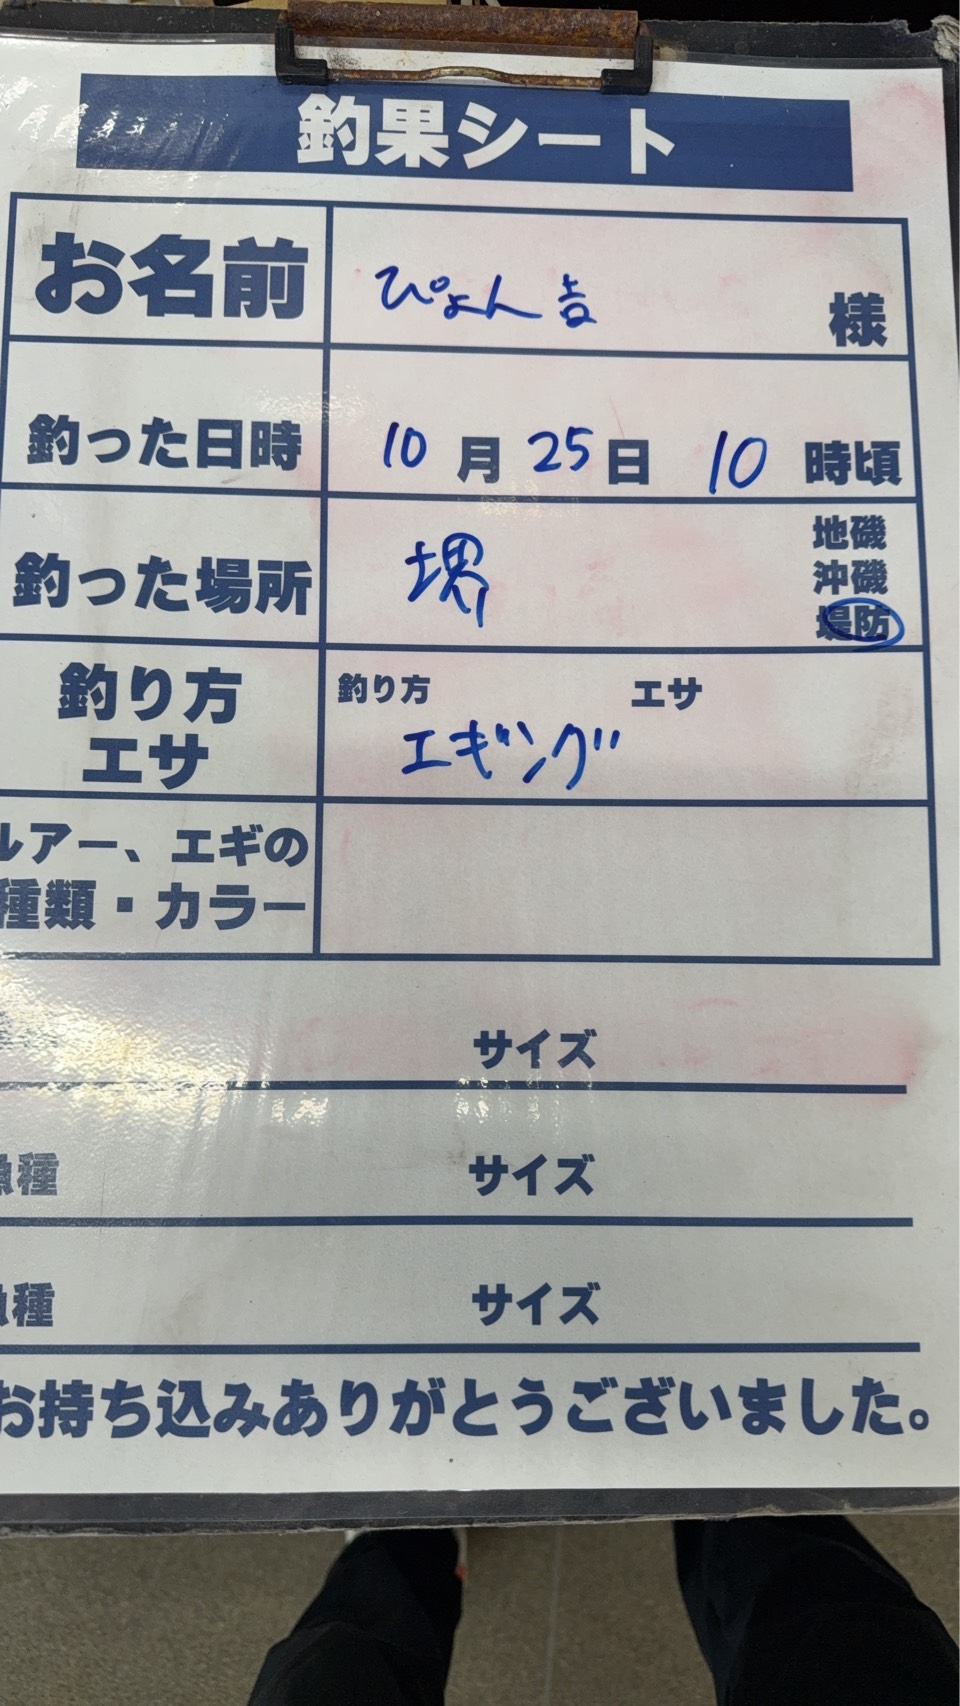 釣果シート
お名前 ぴょん吉 様
釣った日時 10月25日 10時頃
釣った場所 堺 地磯
沖磯
堤防
釣り方 釣り方 エサ
エサ エギング
ルアー、エギの
種類・カラー
サイズ
魚種 サイズ
魚種 サイズ
お持ち込みありがとうございました。